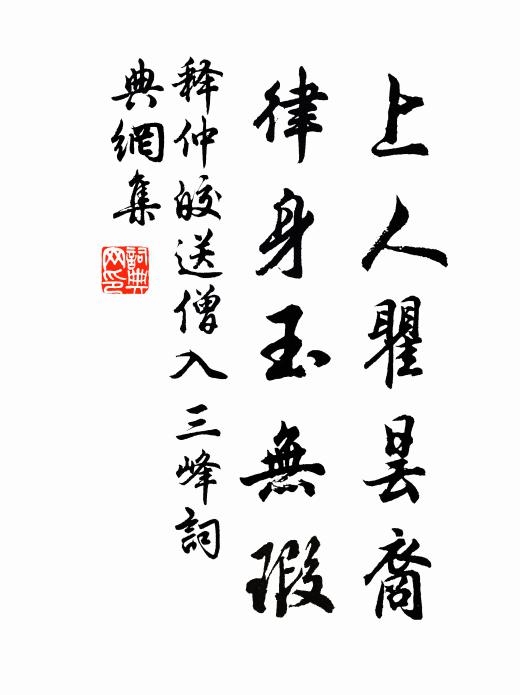 上人瞿昙裔
律身玉無瑕
释仲皎送僧入三峰詞
典網集
詞典
网印